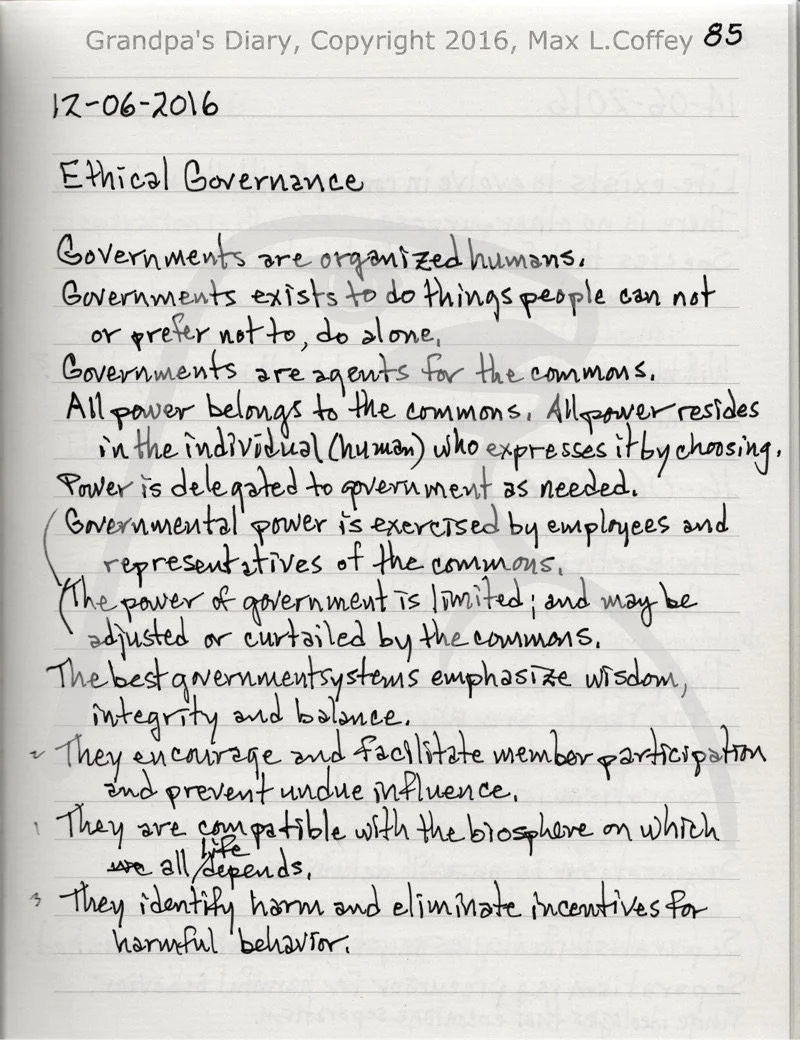 Grandpa's Diary, Copyright 2016, Max L.Coffey 85
12-06-2016
Ethical Governance
Governments are organized humans.
Governments exists to do things people can not
or prefer not to, do alone.
Governments are agents for the commons.
All power belongs to the commons. All power resides
in the individual (human) who expresses it by choosing.
Power is delegated to government as needed.
Governmental power is exercised by employees and
representatives of the commons.
The power of government is limited; and may be
adjusted or curtailed by the commons.
The best government systems emphasize wisdom,
integrity and balance.
2 They encourage and facilitate member participation
and prevent undue influence.
1 They are compatible with the biosphere on which
we all life depends.
3 They identify harm and eliminate incentives for
harmful behavior.